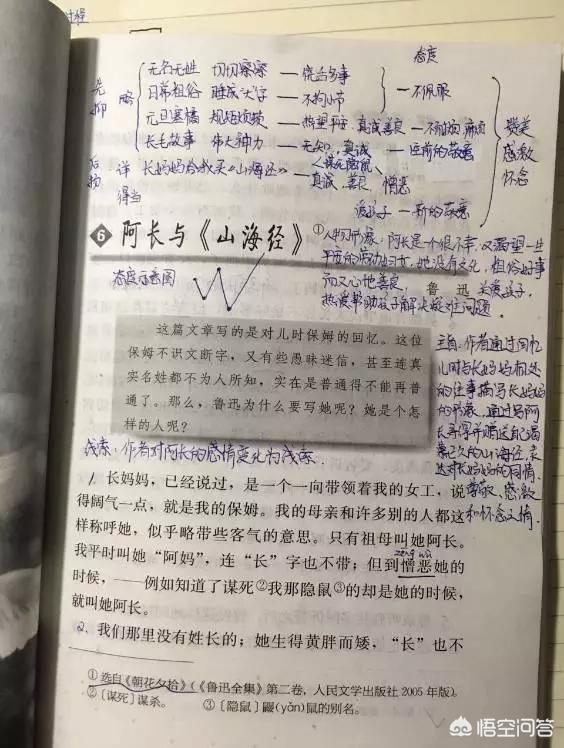 过程
态度
先抑
略
无名无姓 切切察察 — 饶舌多事
日常粗俗 睡成"大"字 — 不拘小节
— 不佩服
元旦塞橘 规矩烦琐 — 热望平安、真诚善良 — 不耐烦
长毛故事 伟大神力 — 无知、真诚 — 空前的敬意
赞美
感激
怀念
后扬
详
得当
长妈妈给我买《山海经》
真诚、善良 憎恶
— 新的敬意
6 阿长与《山海经》
①人物形象:阿长是个很不幸,又渴望一生
平安的劳动妇女,她没有文化,粗俗好事
而又心地善良,
热忱帮助孩子解决疑难问题。
鲁迅
态度示意图
这篇文章写的是对儿时保姆的回忆。这位
保姆不识文断字,又有些愚昧迷信,甚至连真
实名姓都不为人所知,实在是普通得不能再普
通了。那么,鲁迅为什么要写她呢?她是个怎
样的人呢?
主旨:作者通过回忆
儿时与长妈妈相处
的往事描写长妈妈
的形象,通过写阿
长寻写并赠送自己渴
慕已久的山海经,表
达对长妈妈的同情、
尊敬、感激
和怀念之情。
线索:作者对阿长的感情变化为线索.
1. 长妈妈,已经说过,是一个一向带领着我的女工,说
得阔气一点,就是我的保姆。我的母亲和许多别的人都这
样称呼她,似乎略带些客气的意思。只有祖母叫她阿长。
zēng wù
我平时叫她"阿妈",连"长"字也不带;但到憎恶她的
时候,——例如知道了谋死②我那隐鼠③的却是她的时候,
就叫她阿长。
2、我们那里没有姓长的;她生得黄胖而矮,"长"也不
①选自《朝花夕拾》(《鲁迅全集》第二卷,人民文学出版社 2005 年版)。
②〔谋死〕谋杀。 ③〔隐鼠〕鼹(yǎn)鼠的别名。
悟空问答